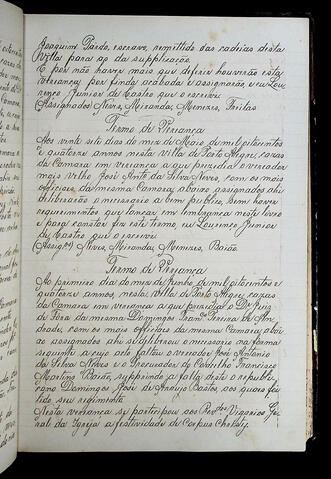 Joaquim Pardo, escravo, remettido das cadeias desta
Villa para as da supplicação.
E por não haver mais que deferir houverão esta
vereança por finda acabada e assignarão e eu Lou-
renço Junior de Castro que o escrevi
(Assignados) Neves, Miranda, Menezes, Freitas
Termo de Vereança
Aos vinte sete dias do mez de Maio de mil oitocentos
e quatorze annos nesta villa de Porto Alegre, cazas
da Camara em vereança a que prezidio o vereador
mais velho José Antº da Silva Neves, com os mais
officiaes da mesma Camara, abaixo assignados ahi
deliberação o necessario a bem publico, sem haver
requerimentos que lançar em lembrança neste livro
e para constar fiz este termo, eu Lourenço Junior
de Castro que o escrevi
(Assigos) Neves, Miranda, Menezes, Baião
Termo de Vereança
Ao primeiro dia do mez de Junho de mil oitocentos e
quatorze annos, nesta villa de Porto Alegre, cazas
da Camara em vereança a que prezidio o Dr Juiz
de Fora da mesma Domingos Franco Pereira de An-
drade, com os mais officiaes da mesma Camara, abai-
xo assignados ahi deliberou o necessario na forma
seguinte a cujo acto faltou o vereador José Antonio
da Silva Neves e o Procurador do Concelho Francisco
Martins Baião, supprindo a falta deste o republi-
cano Domingos José de Araujo Bastos, aos quaes foi
lido seu regimento
Nesta vereança se participou aos Rendos Vigarios Ge-
ral da Igreja a festividade de Corpus Christy.